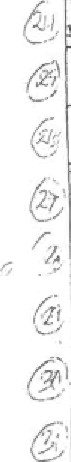 24
25
26
27
28
29
30
31